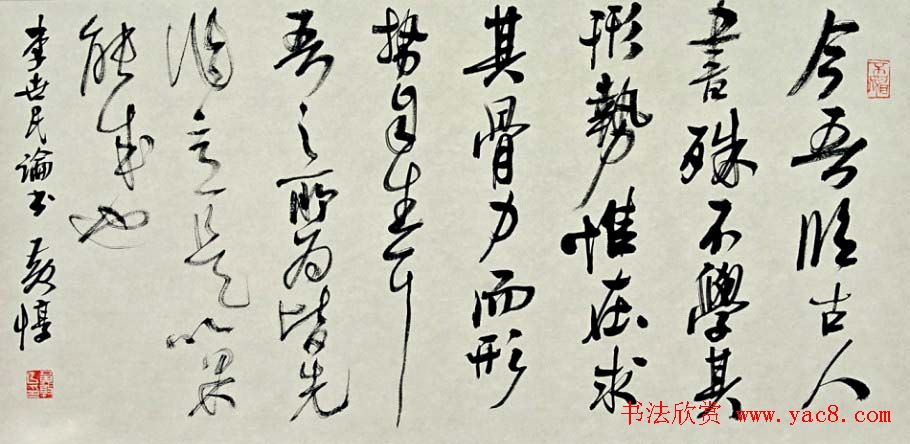 今吾臨古人
書殊不學其
形勢惟在求
其骨力而形
勢自生耳
吾之所為皆先
作意是以果
能成也
李世民論書 黄惇
书法欣赏 www.yac8.com